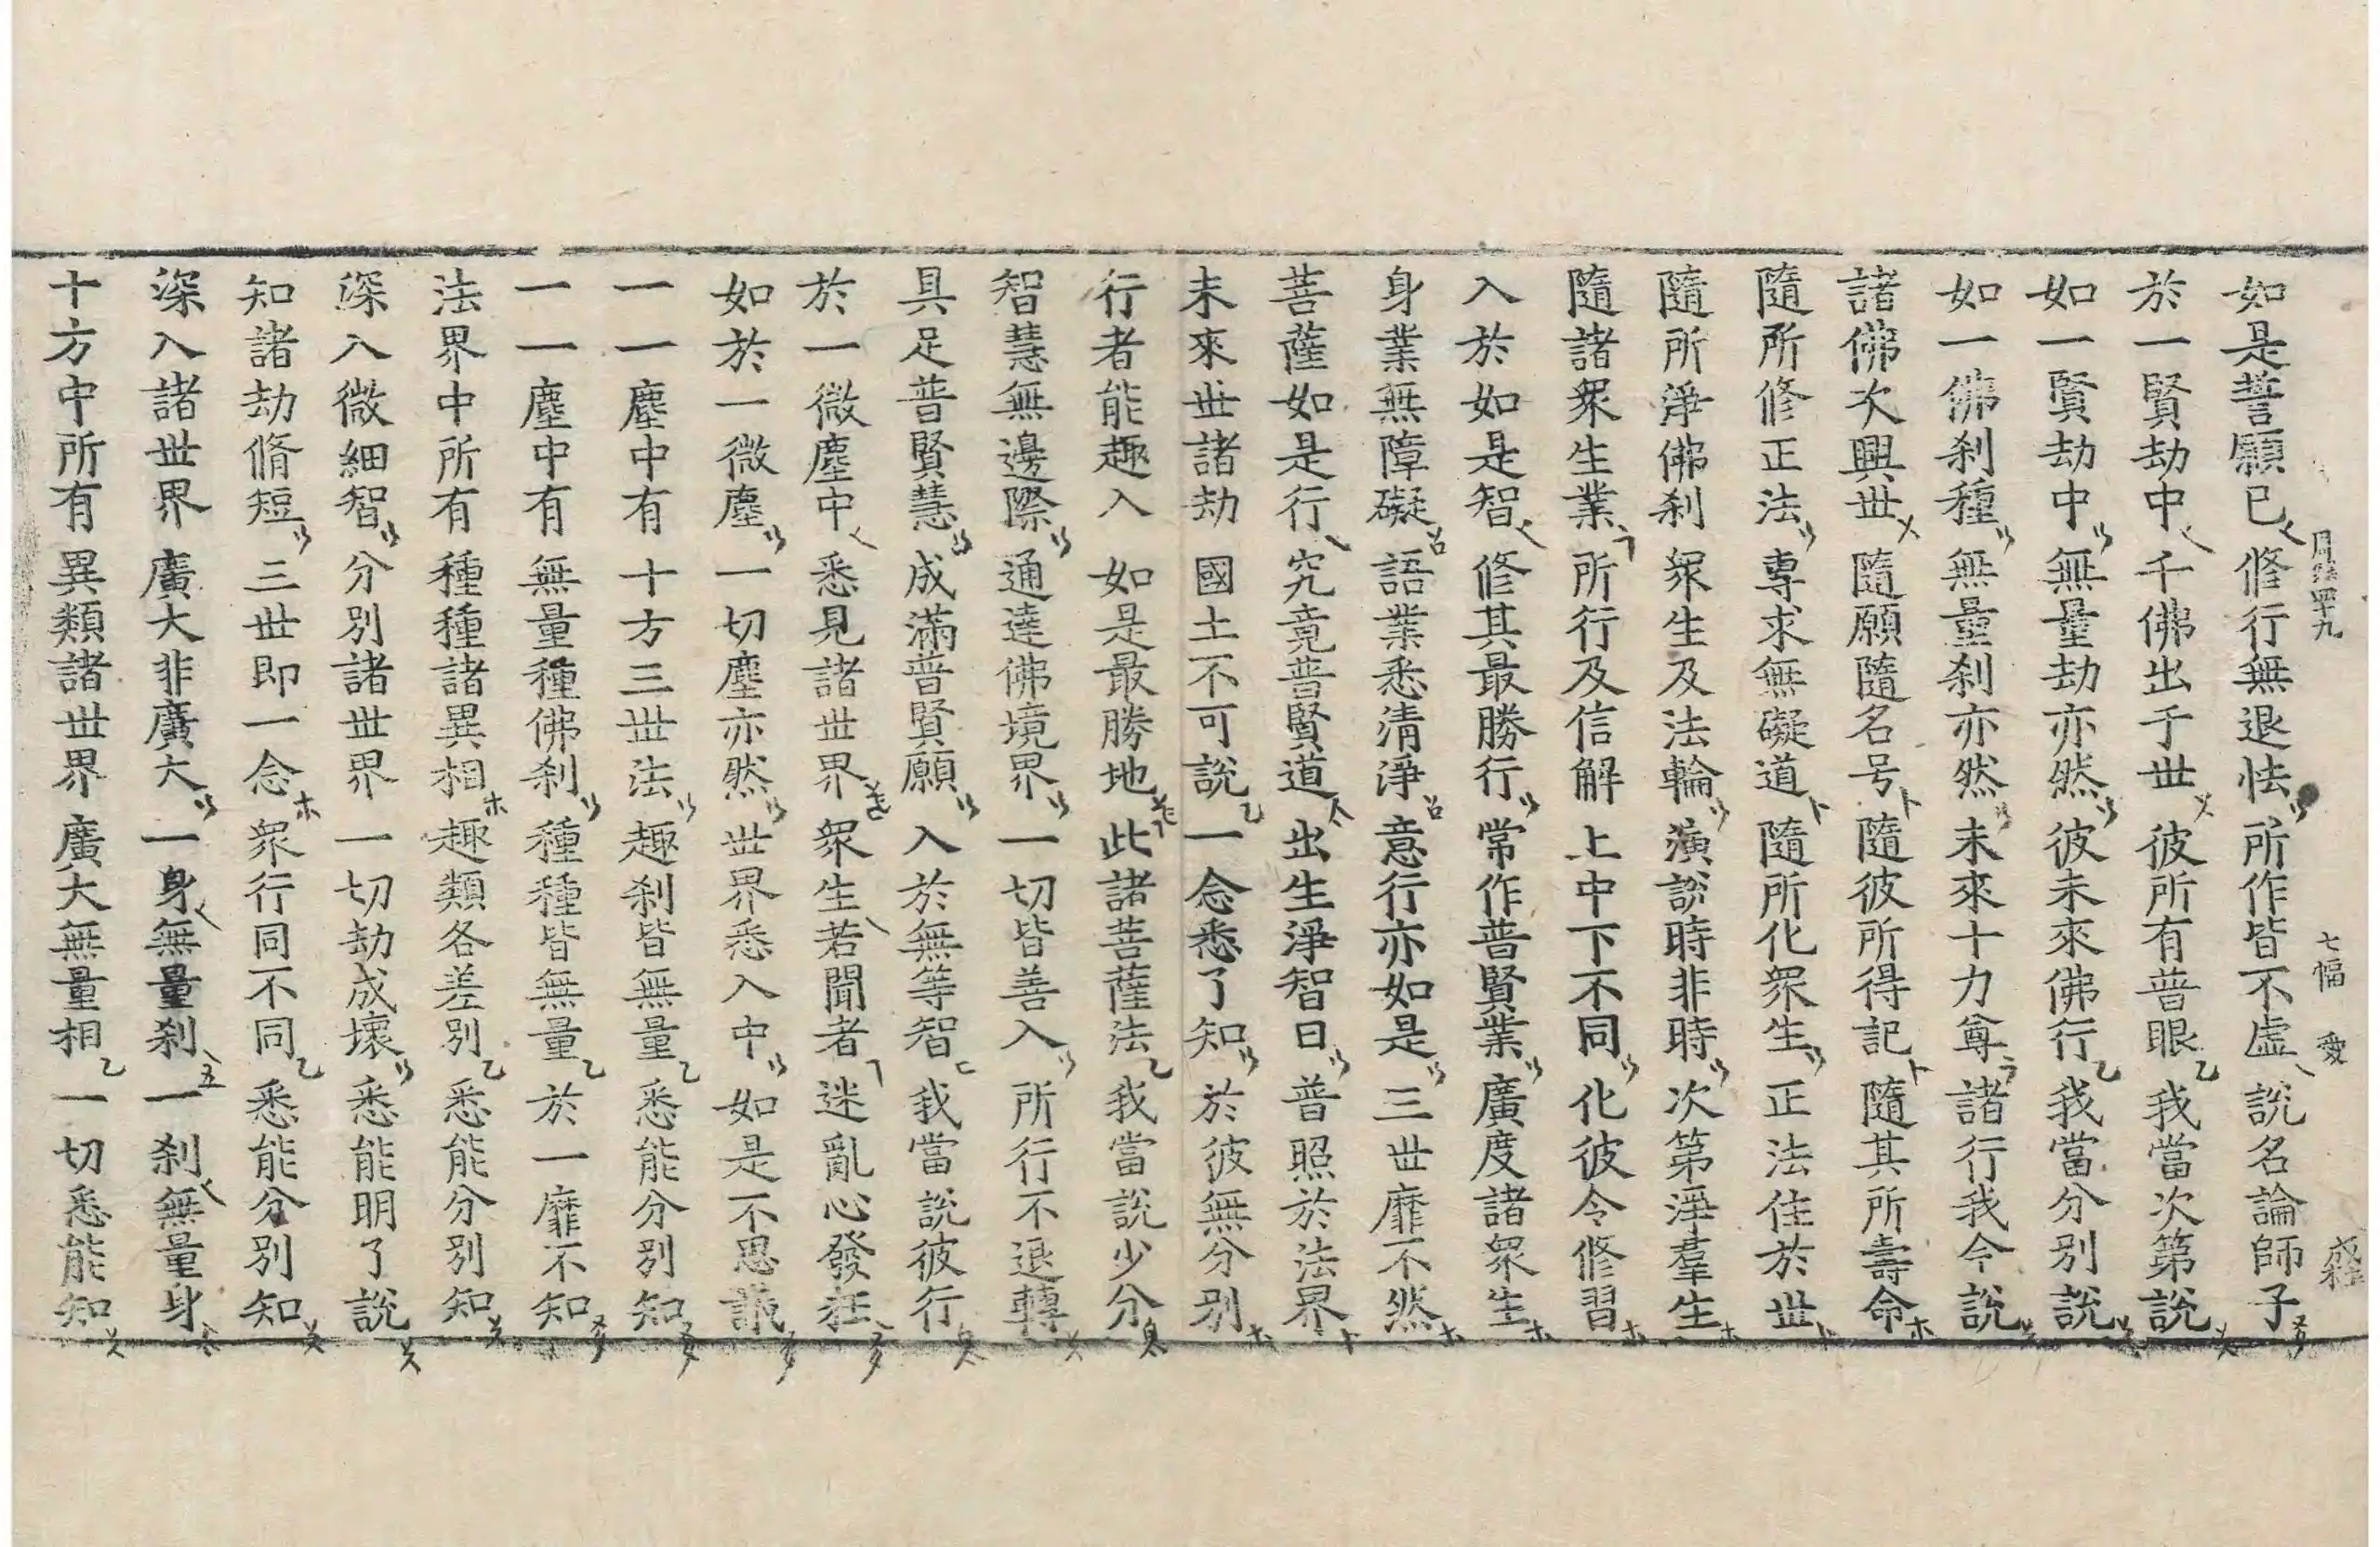 如是誓願已 修行無退怯 所作皆不虛 說名論師子
於一賢劫中 千佛出于世 彼所有普眼 我當次第說
如一賢劫中 無量劫亦然 彼未來佛行 我當分別說
如一佛刹種 無量刹亦然 未來十力尊 諸行我今說
諸佛次興世 隨願隨名号 隨彼所得記 隨其所壽命
隨所修正法 専求無礙道 隨所化衆生 正法住於世
隨所淨佛刹 衆生及法輪 演說時非時 次第淨羣生
隨諸衆生業 所行及信解 上中下不同 化彼令修習
入於如是智 修其最勝行 常作普賢業 廣度諸衆生
身業無障礙 語業悉清淨 意行亦如是 三世靡不然
菩薩如是行 究竟普賢道 出生淨智日 普照於法界
未來世諸劫 國土不可說 一念悉了知 於彼無分別
行者能趣入 如是最勝地 此諸菩薩法 我當說少分
智慧無邊際 通達佛境界 一切皆善入 所行不退轉
具足普賢慧 成滿普賢願 入於無等智 我當說彼行
於一微塵中 悉見諸世界 衆生若聞者 迷亂心發狂
如於一微塵 一切塵亦然 世界悉入中 如是不思議
一一塵中有 十方三世法 趣刹皆無量 悉能分別知
一一塵中有 無量種佛刹 種種皆無量 於一靡不知
法界中所有 種種諸異相 趣類各差別 悉能分別知
深入微細智 分別諸世界 一切劫成壞 悉能明了說
知諸劫脩短 三世即一念 衆行同不同 悉能分別知
深入諸世界 廣大非廣大 一身無量刹 一刹無量身
十方中所有 異類諸世界 廣大無量相 一切悉能知
周經四十九 七幅 愛